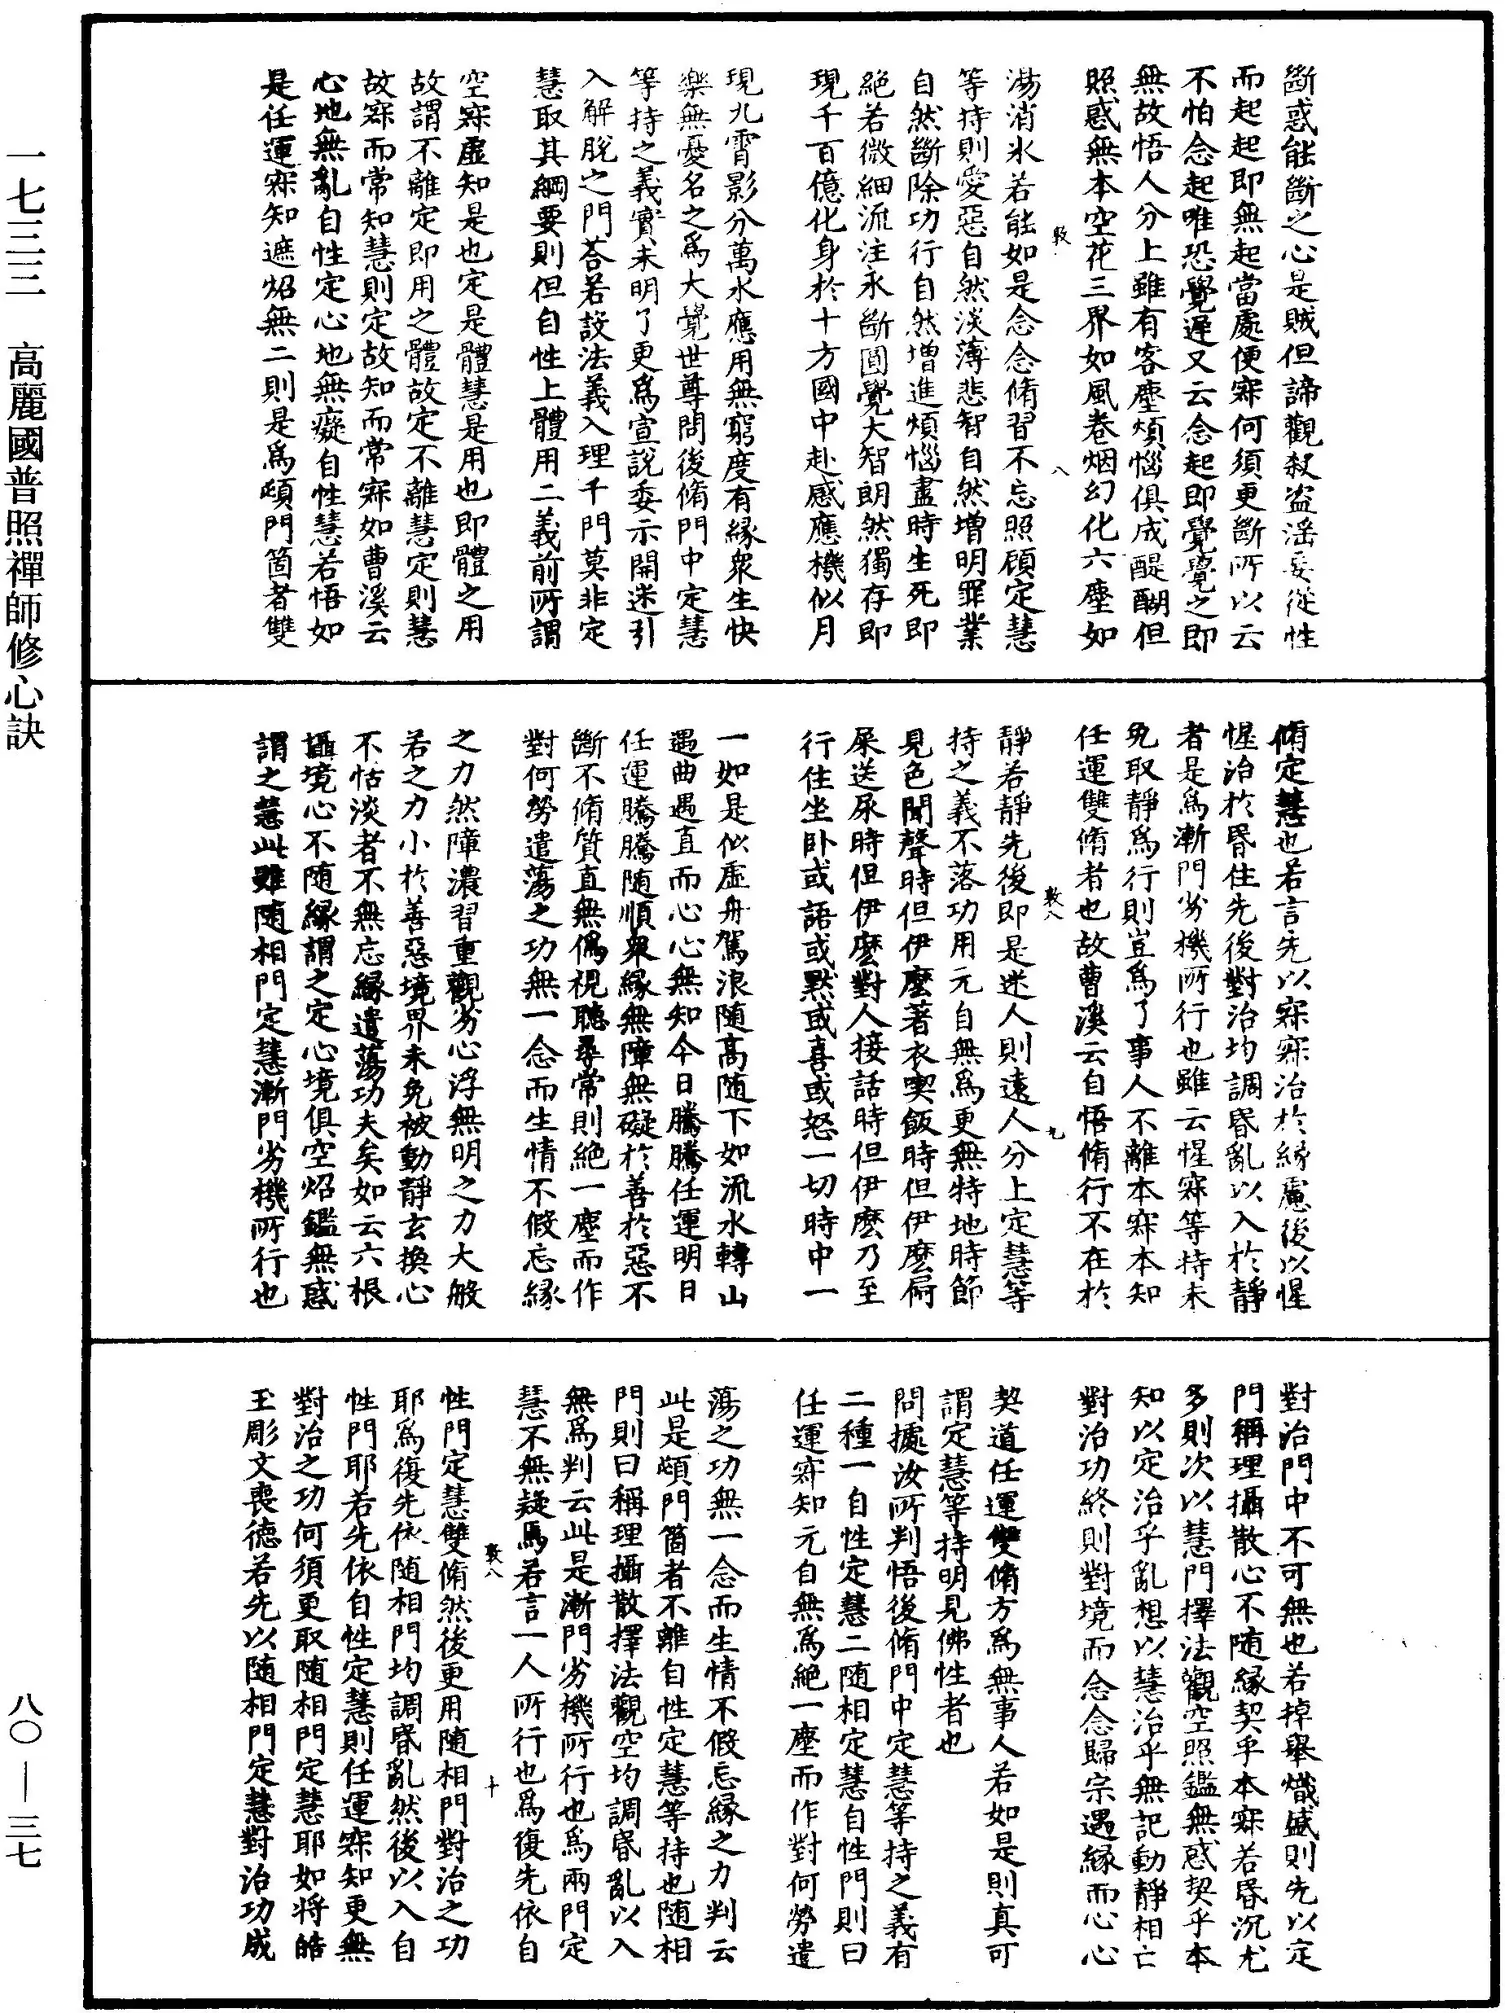 斷惑能斷之心是賊但諦觀殺盜淫妄從性
而起起即無起當處便寂何須更斷所以云
不怕念起唯恐覺遲又云念起即覺覺之即
無故悟人分上雖有客塵煩惱俱成醍醐但
照惑無本空花三界如風卷烟幻化六塵如
湯消氷若能如是念念脩習不忘照顧定慧
等持則愛惡自然淡薄悲智自然增明罪業
自然斷除功行自然增進煩惱盡時生死即
絕若微細流注永斷圓覺大智朗然獨存即
現千百億化身於十方國中赴感應機似月
現九霄影分萬水應用無窮度有緣衆生快
樂無憂名之爲大覺世尊問後脩門中定慧
等持之義實未明了更爲宣說委示開迷引
入解脫之門荅若設法義入理千門莫非定
慧取其綱要則但自性上體用二義前所謂
空寂虛知是也定是體慧是用也即體之用
故謂不離定即用之體故定不離慧定則慧
故寂而常知慧則定故知而常寂如曹溪云
心地無亂自性定心地無癡自性慧若悟如
是任運寂知遮炤無二則是爲頓門箇者雙
脩定慧也若言先以寂寂治於緣慮後以惺
惺治於昏住先後對治均調昏亂以入於靜
者是爲漸門劣機所行也雖云惺寂等持未
免取靜爲行則豈爲了事人不離本寂本知
任運雙脩者也故曹溪云自悟脩行不在於
靜若靜先後即是迷人則達人分上定慧等
持之義不落功用元自無爲更無特地時節
見色聞聲時但伊麽著衣喫飯時但伊麽屙
屎送尿時但伊麽對人接話時但伊麽乃至
行住坐卧或語或默或喜或怒一切時中一
一如是似虛舟駕浪隨高隨下如流水轉山
遇曲遇直而心心無知今日騰騰任運明日
任運騰騰隨順衆緣無障無礙於善於惡不
斷不脩質直無僞視聽尋常則絕一塵而作
對何勞遣蕩之功無一念而生情不假忘緣
之力然障濃習重觀劣心浮無明之力大般
若之力小於善惡境界未免被動靜玄換心
不怗淡者不無忘緣遣蕩功夫矣如云六根
攝境心不隨緣謂之定心境俱空炤鑑無惑
謂之慧此雖隨相門定慧漸門劣機所行也
對治門中不可無也若掉舉熾盛則先以定
門稱理攝散心不隨緣契乎本寂若昏沉尤
多則次以慧門擇法觀空照鑑無惑契乎本
知以定治乎亂想以慧治乎無記動靜相亡
對治功終則對境而念念歸宗遇緣而心心
契道任運雙脩方爲無事人若如是則真可
謂定慧等持明見佛性者也
問據汝所判悟後脩門中定慧等持之義有
二種一自性定慧二隨相定慧自性門則曰
任運寂知元自無爲絕一塵而作對何勞遣
蕩之功無一念而生情不假忘緣之力判云
此是頓門箇者不離自性定慧等持也隨相
門則曰稱理攝散擇法觀空均調昏亂以入
無爲判云此是漸門劣機所行也爲兩門定
慧不無疑焉若言一人所行也爲復先依自
性門定慧雙脩然後更用隨相門對治之功
耶爲復先依隨相門均調昏亂然後以入自
性門耶若先依自性定慧則任運寂知更無
對治之功何須更取隨相門定慧耶如將皓
玉彫文喪德若先以隨相門定慧對治功成
八
敦八
九
敦八
十
一七三三 高麗國普照禪師修心訣
八〇—三七